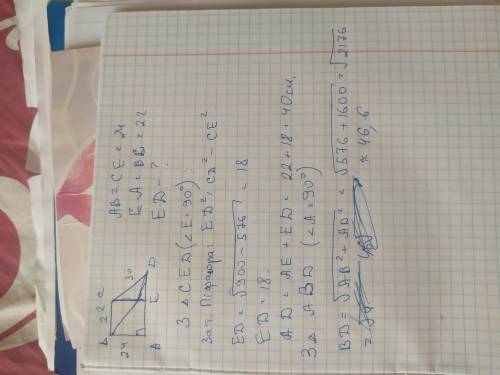 B 22 C
24
30
A E D
AB = CE = 24
EA = BC = 22
ED - ?
З △ CED (∠E = 90°):
За т. Піфагора: ED² = CD² - CE²
ED = √900 - 576 = 18
ED = 18.
AD = AE + ED = 22 + 18 = 40 см.
З △ ABD (∠A = 90°)
BD = √AB² + AD² = √576 + 1600 = √2176
≈ 46,6